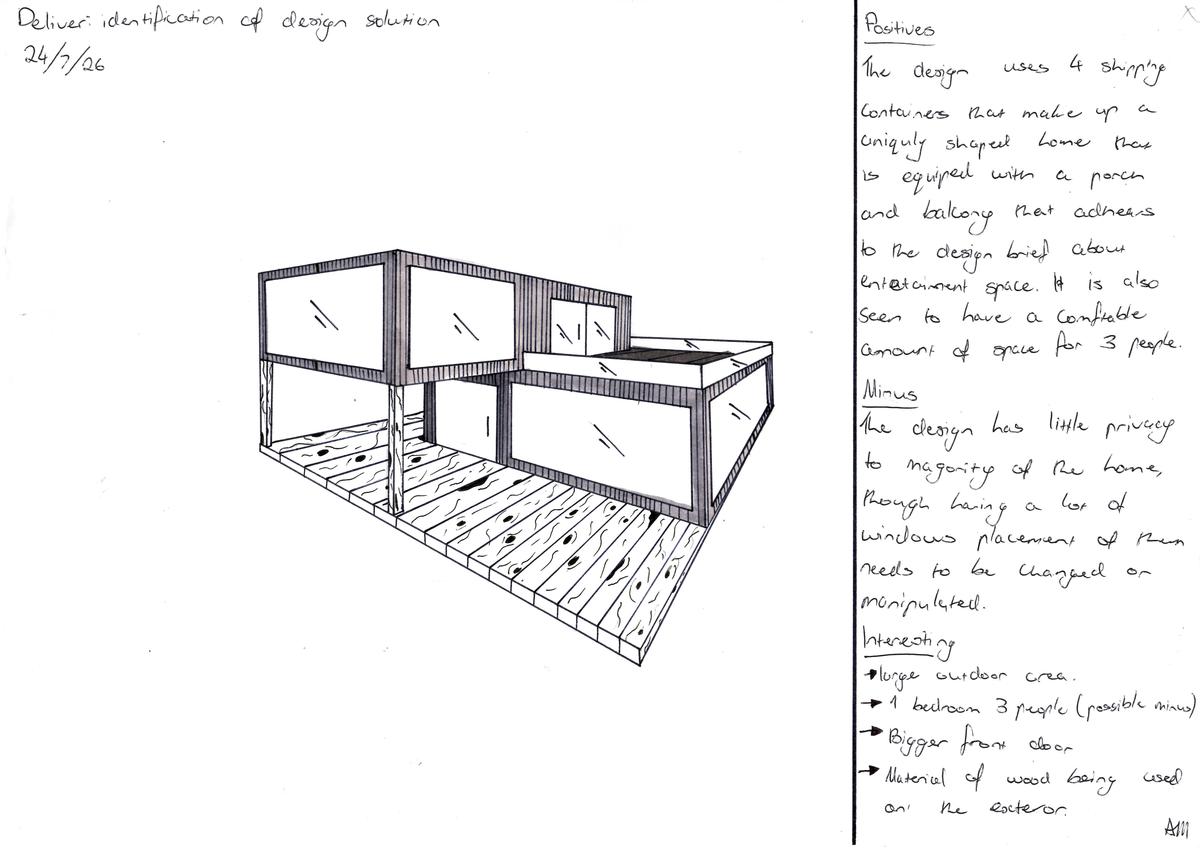 Deliver: identification of design solution
24/7/26
Positives
The design uses 4 shipping
containers that make up a
uniquly shaped home that
is equiped with a porch
and balkony that adhears
to the design brief about
entatainment space. It is also
seen to have a comftable
amount of space for 3 people.
Minus
The design has little privacy
to magority of the home,
though having a lot of
windows placement of them
needs to be changed or
manipulated.
Interesting
→ large outdoor area.
→ 1 bedroom 3 people (possible minus)
→ Bigger front door
→ Material of wood being used
on the exteror.
AM